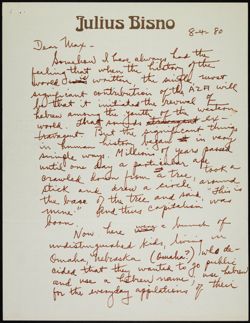 Julius Bisno
8-4-80
Dear Max -
Somehow I have always had the
feeling that when the history of the
world is written, the single most
significant contribution of the AZA will
be that it initiated the revival of
hebrew among the youth of the western
world. That ex-
travagent. But the significant things
in human history began in very
simple ways. Millions of years passed
until one day a particular ape
crawled down from a tree, took a
stick and drew a circle around
the base of the tree and said, "this is
mine." And thus capitalism was
born.
Now here a bunch of
undistinguished kids, living in
Omaha, Nebraska (Omaha?) who de-
cided that they wanted to go public
and use a hebrew name, use hebrew
for the everyday appellations of their